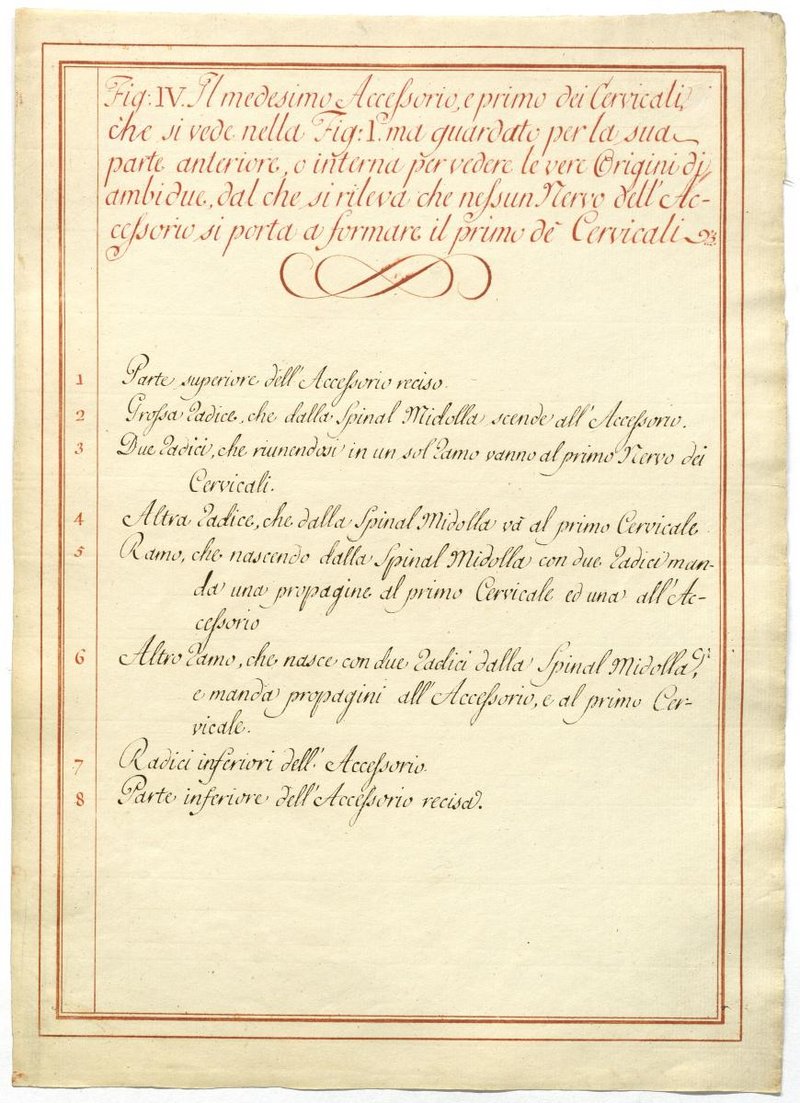 Fig: IV. Il medesimo Accessorio, e primo dei Cervicali,
che si vede nella Fig: I. ma guardato per la sua
parte anteriore, o interna per vedere le vere Origini di
ambidue, dal che si rileva che nessun Nervo dell'Ac-
cessorio si porta a formare il primo de Cervicali
1 Parte superiore dell'Accessorio reciso.
2 Grossa radice, che dalla Spinal Midolla scende all'Accessorio.
3 Due radici, che riunendosi in un sol ramo vanno al primo Nervo dei
Cervicali.
4 Altra radice, che dalla Spinal Midolla và al primo Cervicale.
5 Ramo, che nascendo dalla Spinal Midolla con due radici man-
da una propagine al primo Cervicale ed una all'Ac-
cessorio
6 Altro ramo, che nasce con due radici dalla Spinal Midolla,
e manda propagini all'Accessorio, e al primo Cer-
vicale.
7 Radici inferiori dell'Accessorio.
8 Parte inferiore dell'Accessorio recisa.